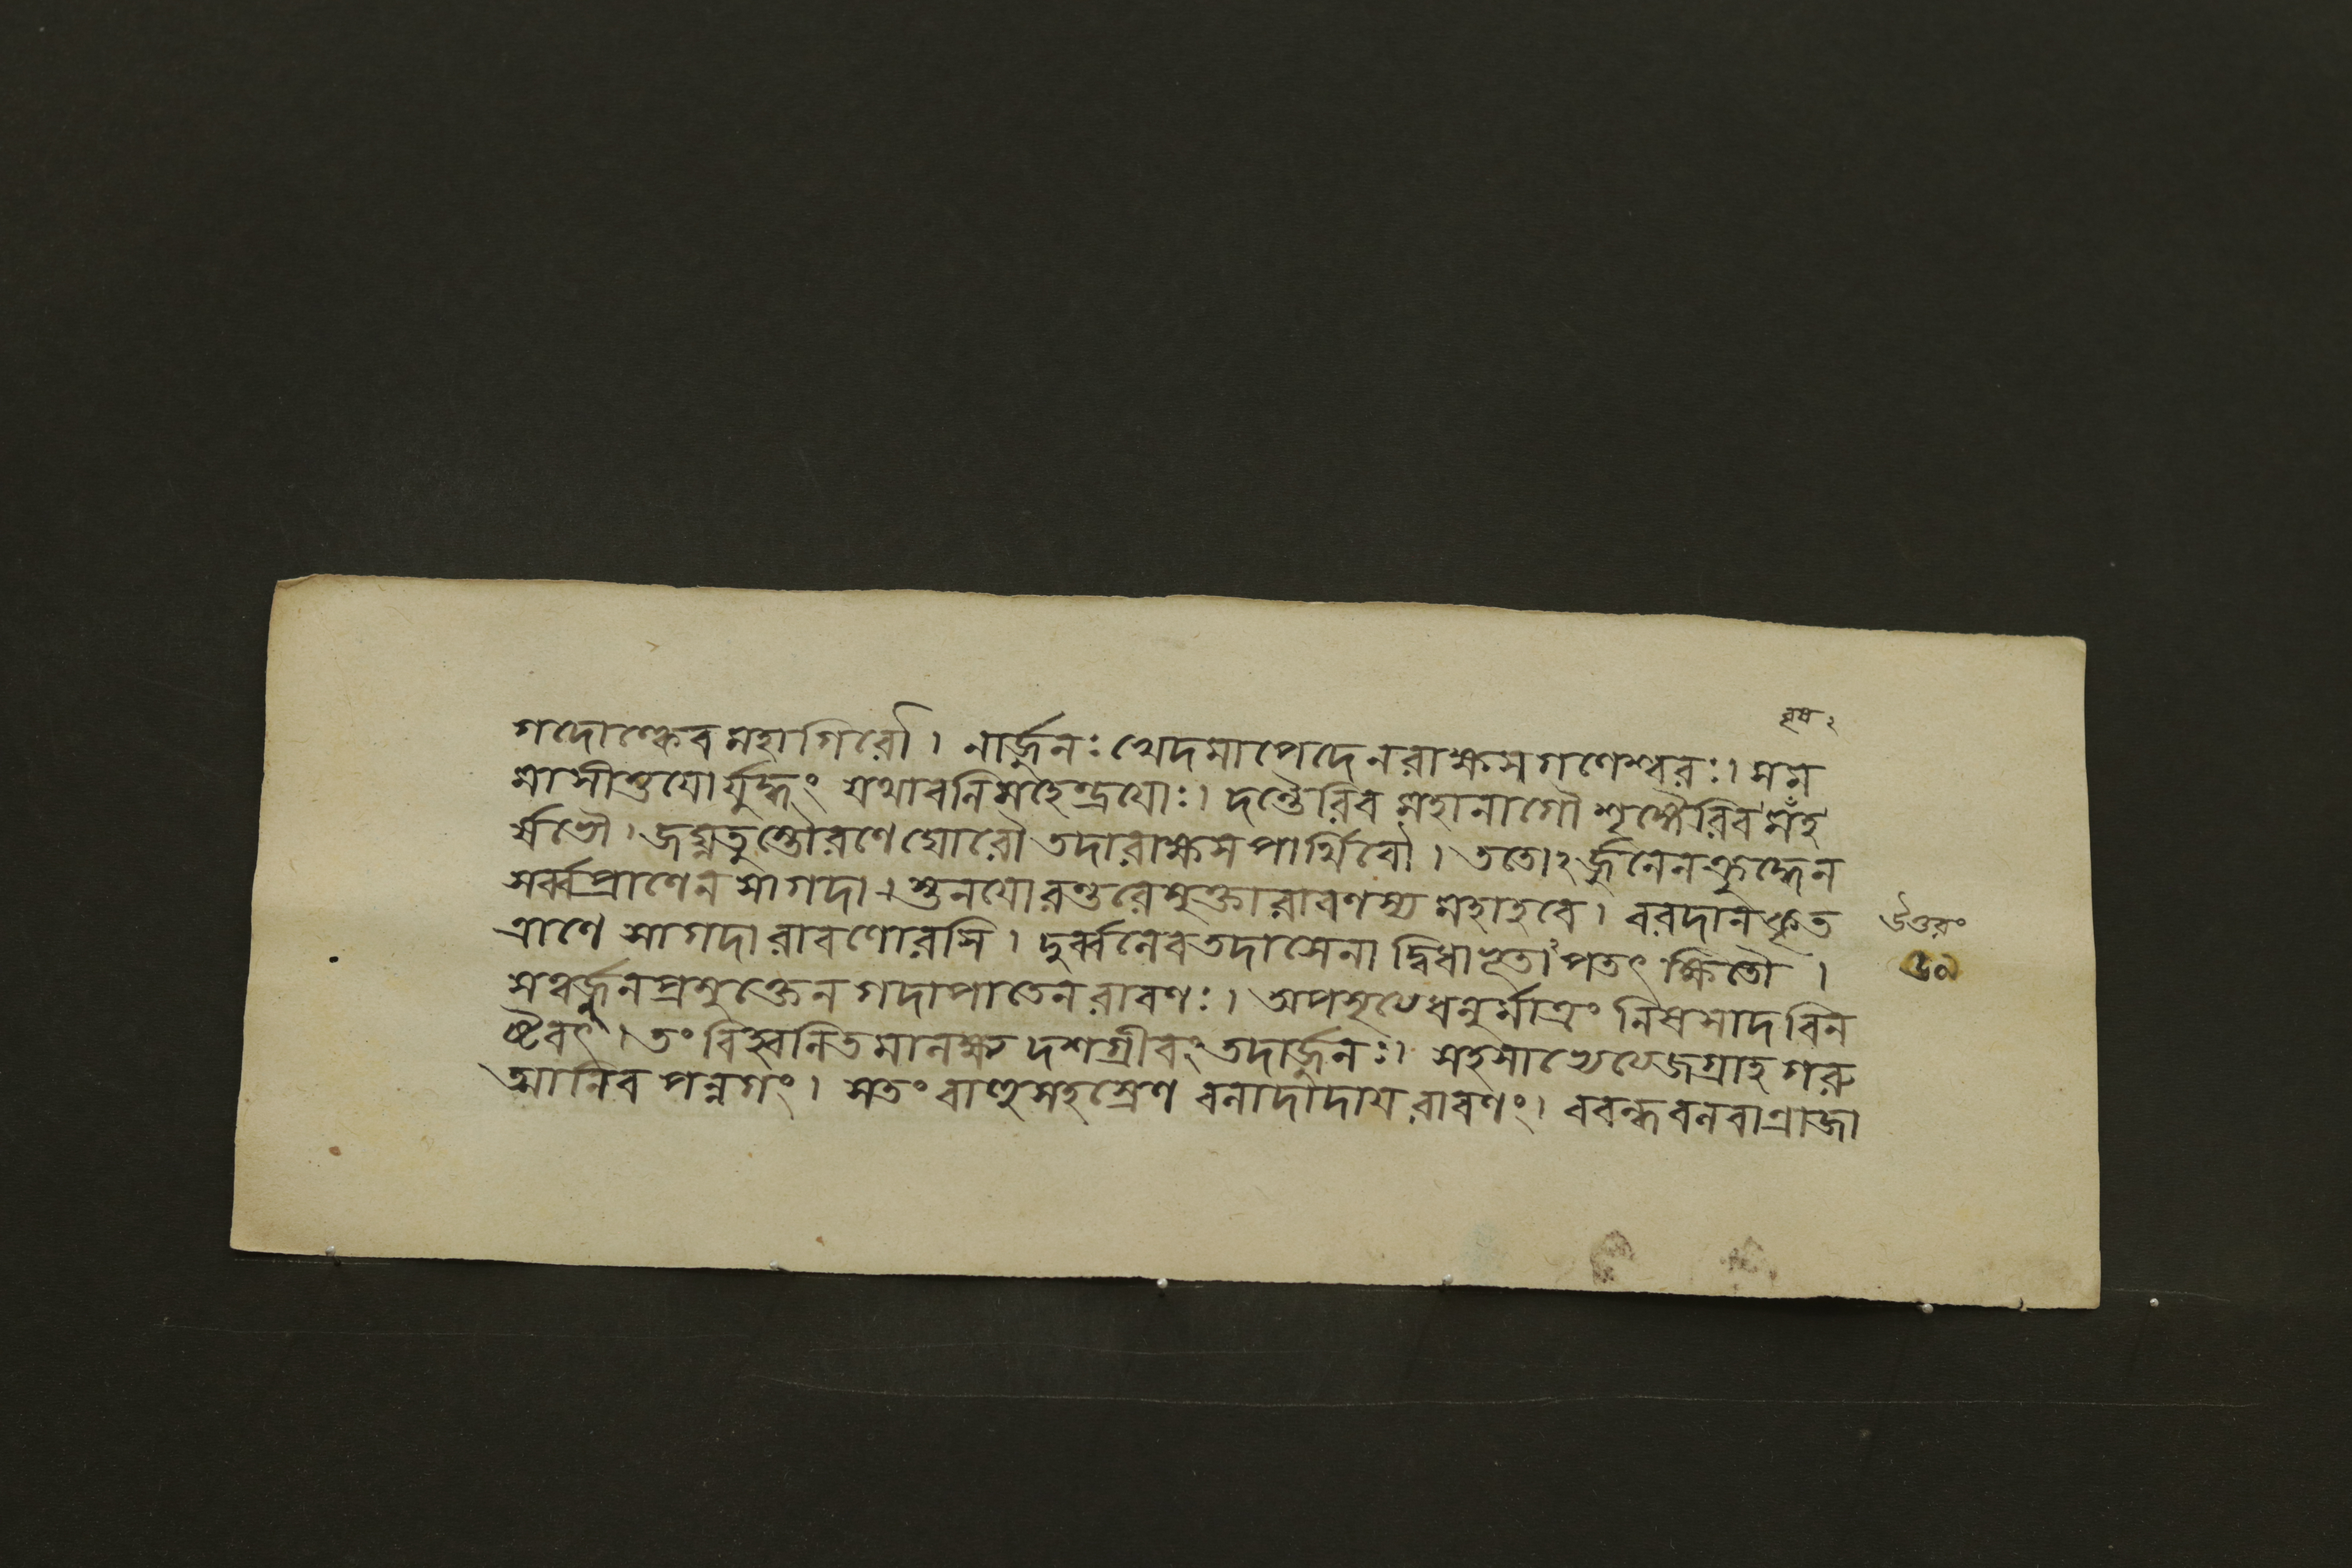 বৃষ ২
গদোল্কেব মহাগিরৌ । নার্জ্জুনঃ খেদমাপেদে ন রাক্ষসগণেশ্বরঃ । সম
মাসীত্তয়োর্যুদ্ধং যথা বলিমহেন্দ্রয়োঃ । দন্তৈরিব মহানাগৌ শৃঙ্গৈরিব মহ
র্ষভৌ । জঘ্নতুস্তৌ রণে ঘোরৌ তদা রাক্ষসপার্থিবৌ । ততোঽর্জ্জুনেন ক্রুদ্ধেন
সর্ব্বপ্রাণেন সা গদা । স্তনয়োরন্তরে মুক্তা রাবণস্য মহাহবে । বরদানকৃত
ত্রাণে সা গদা রাবণোরসি । দুর্ব্বলেব তদা সেনা দ্বিধাভূতাপতৎ ক্ষিতৌ ।
স ত্বর্জ্জুনপ্রমুক্তেন গদাপাতেন রাবণঃ । অপসৃত্য ধনুর্মাত্রং নিষসাদ বিন
ষ্টবৎ । তং বিহ্বলিতমালক্ষ্য দশগ্রীবং তদার্জ্জুনঃ । সহসা জগ্রাহ গরু
ত্মানিব পন্নগং । স তং বাহুসহস্রেণ বলাদাদায় রাবণং । ববন্ধ বলবান্রাজা
উত্তরং
৬০